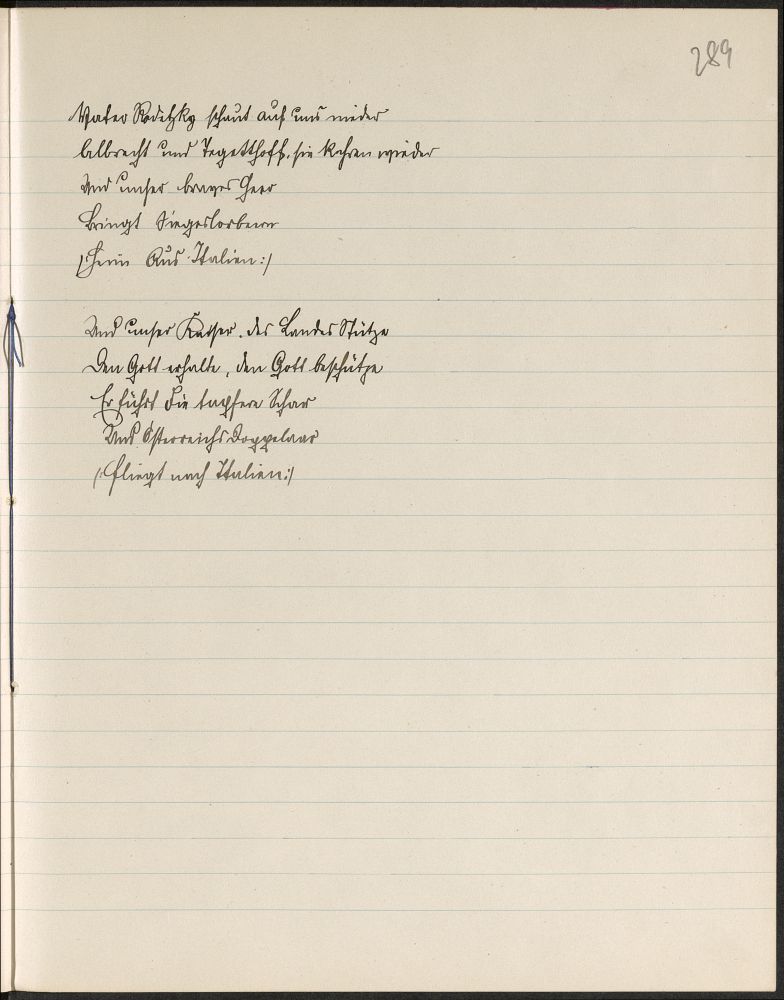 289
Vater Radetzky schaut auf uns nieder
Albrecht und Tegetthoff, sie kehren wieder
Und unser braves Heer
Bringt Siegeslorbeern
|: Heim Aus Italien :|
Und unser Kaiser. des Landes Stütze
Den Gott erhalte, den Gott beschütze
Er führt die tapfere Schar
Und Österreichs Doppelaar
|: fliegt nach Italien :|